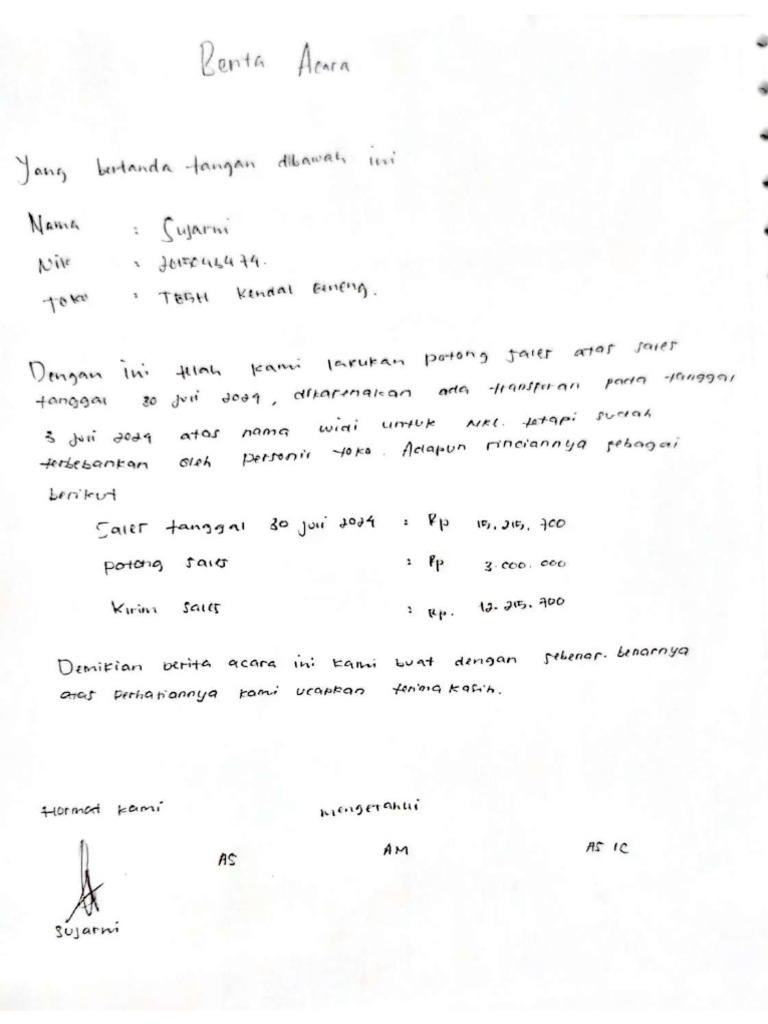 Berita Acara
Yang bertanda tangan dibawah ini
Nama : Sujarni
Nik : 2015043474.
Toko : TBGH Kendal Geneng.
Dengan ini telah kami lakukan potong sales atas sales
tanggal 30 Juli 2024, dikarenakan ada transferan pada tanggal
3 Juli 2024 atas nama widi untuk NKL. tetapi sudah
terbebankan oleh personil toko. Adapun rinciannya sebagai
berikut
Sales tanggal 30 juli 2024 : Rp 15.215.700
potong sales : Rp 3.000.000
Kirim sales : Rp. 12.215.700
Demikian berita acara ini kami buat dengan sebenar-benarnya
atas perhatiannya kami ucapkan terima kasih.
Hormat kami Mengetahui
AS AM AS IC
Sujarni